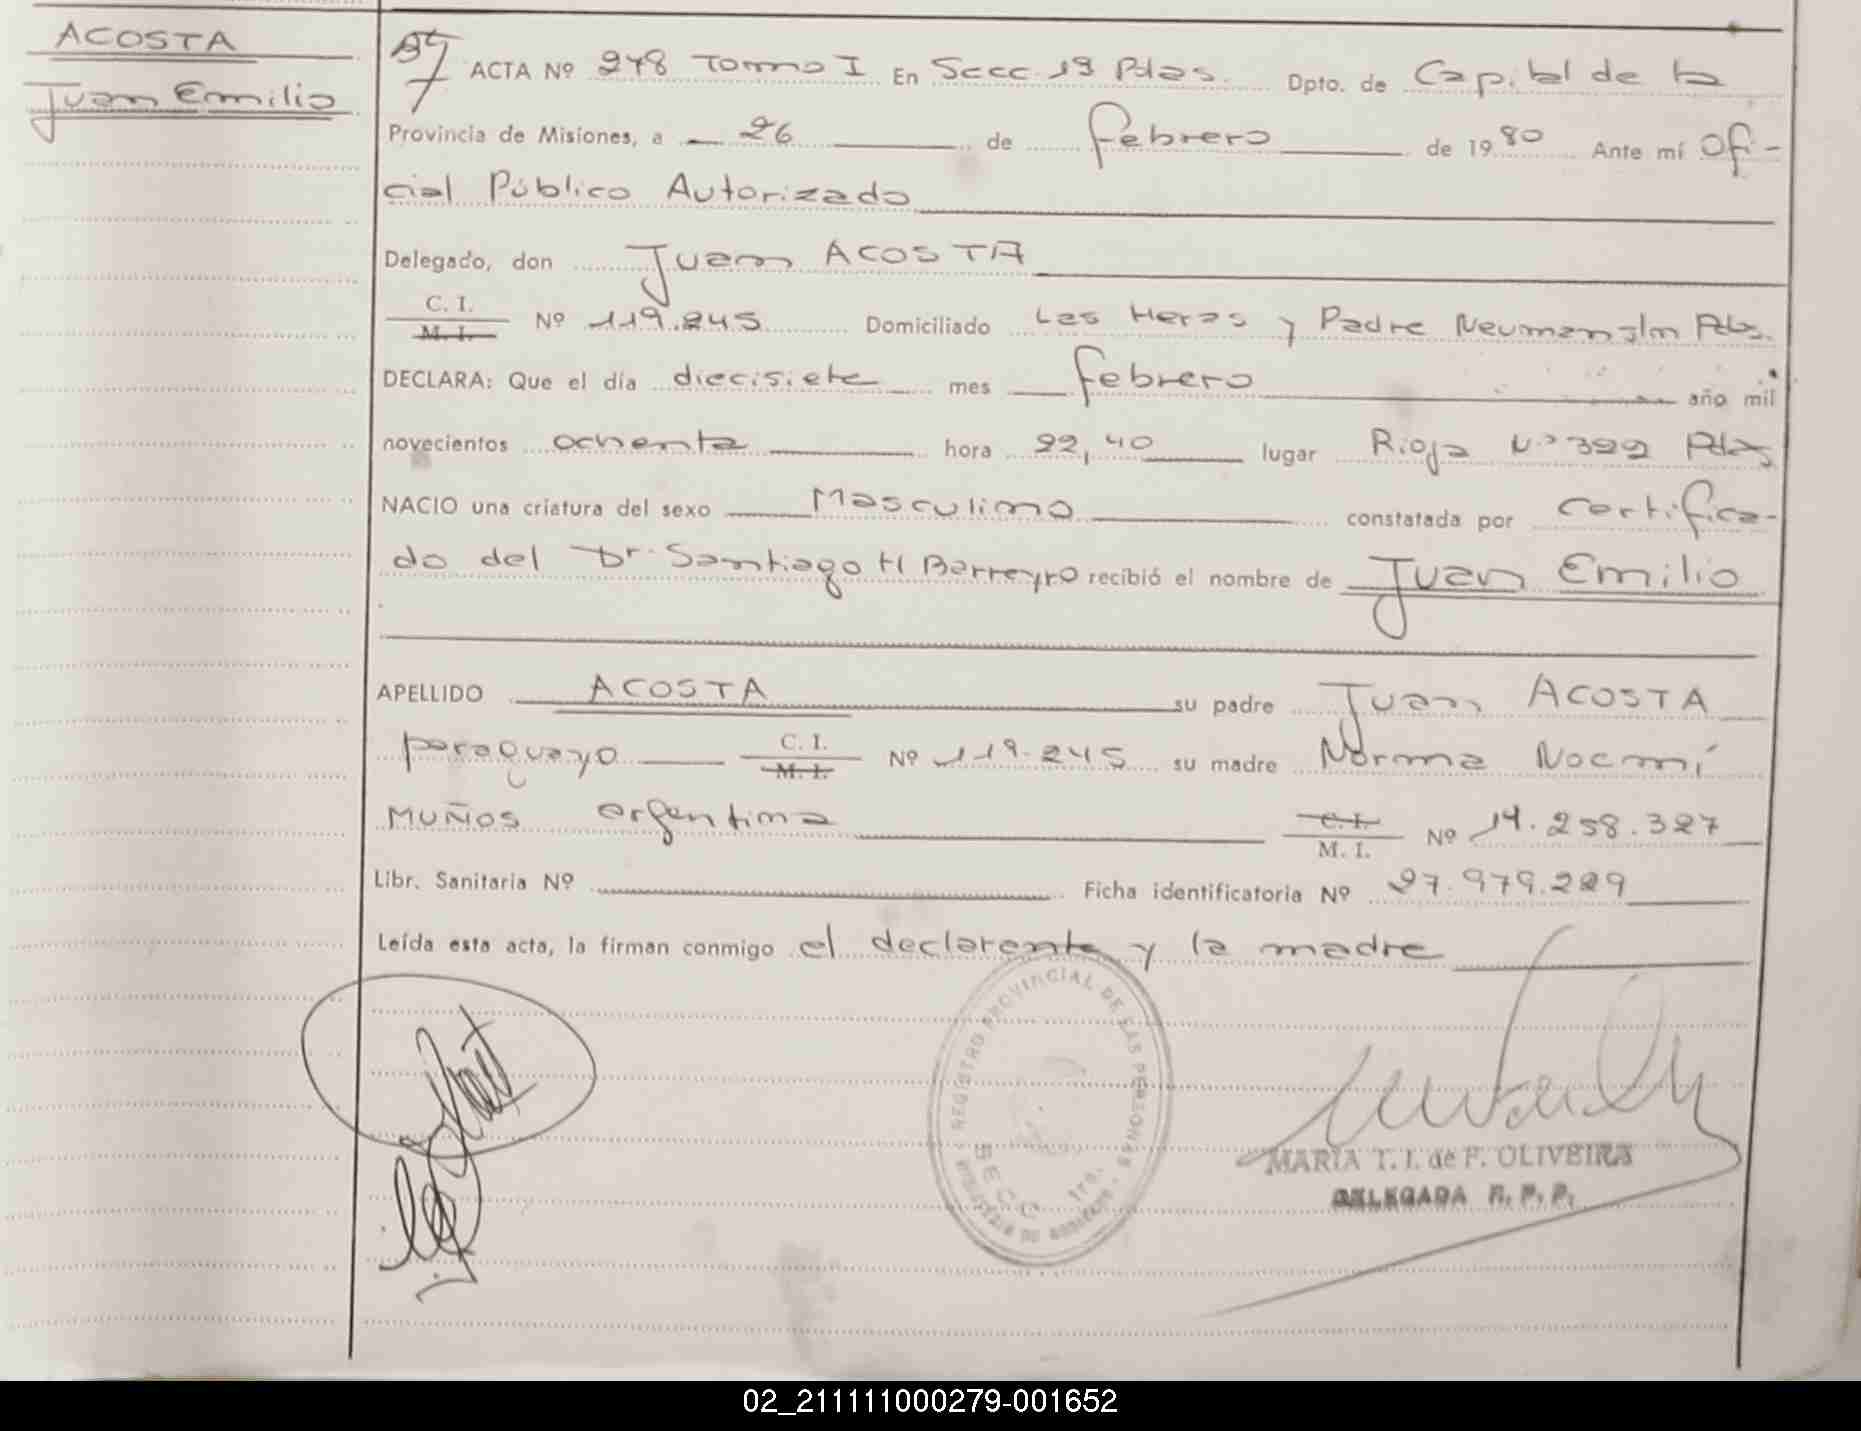 ACOSTA
Juan Emilio
ACTA Nº 248 Tomo I En Secc. 1ª Pdas. Dpto. de Capital de la
Provincia de Misiones, a 26 de febrero de 1980 Ante mí Ofi-
cial Público Autorizado
Delegado, don Juan ACOSTA
C. I.
M. I. Nº 119.245 Domiciliado Las Heras y Padre Neuman Pdas.
DECLARA: Que el día diecisiete mes febrero año mil
novecientos ochenta hora 22,40 lugar Rioja Nº 322 Pdas
NACIO una criatura del sexo Masculino constatada por certifica-
do del Dr. Santiago H Barreyro recibió el nombre de Juan Emilio
APELLIDO ACOSTA su padre Juan ACOSTA
paraguayo C. I.
M. I. Nº 119.245 su madre Norma Noemí
MUÑOS argentina C. I.
M. I. Nº 14.258.327
Libr. Sanitaria Nº Ficha identificatoria Nº 27.979.229
Leída esta acta, la firman conmigo el declarante y la madre
REGISTRO PROVINCIAL DE LAS PERSONAS
MINISTERIO DE GOBIERNO
SECC. 1ra.
MARIA T. I. de F. OLIVEIRA
DELEGADA R. P. P.
02_211111000279-001652